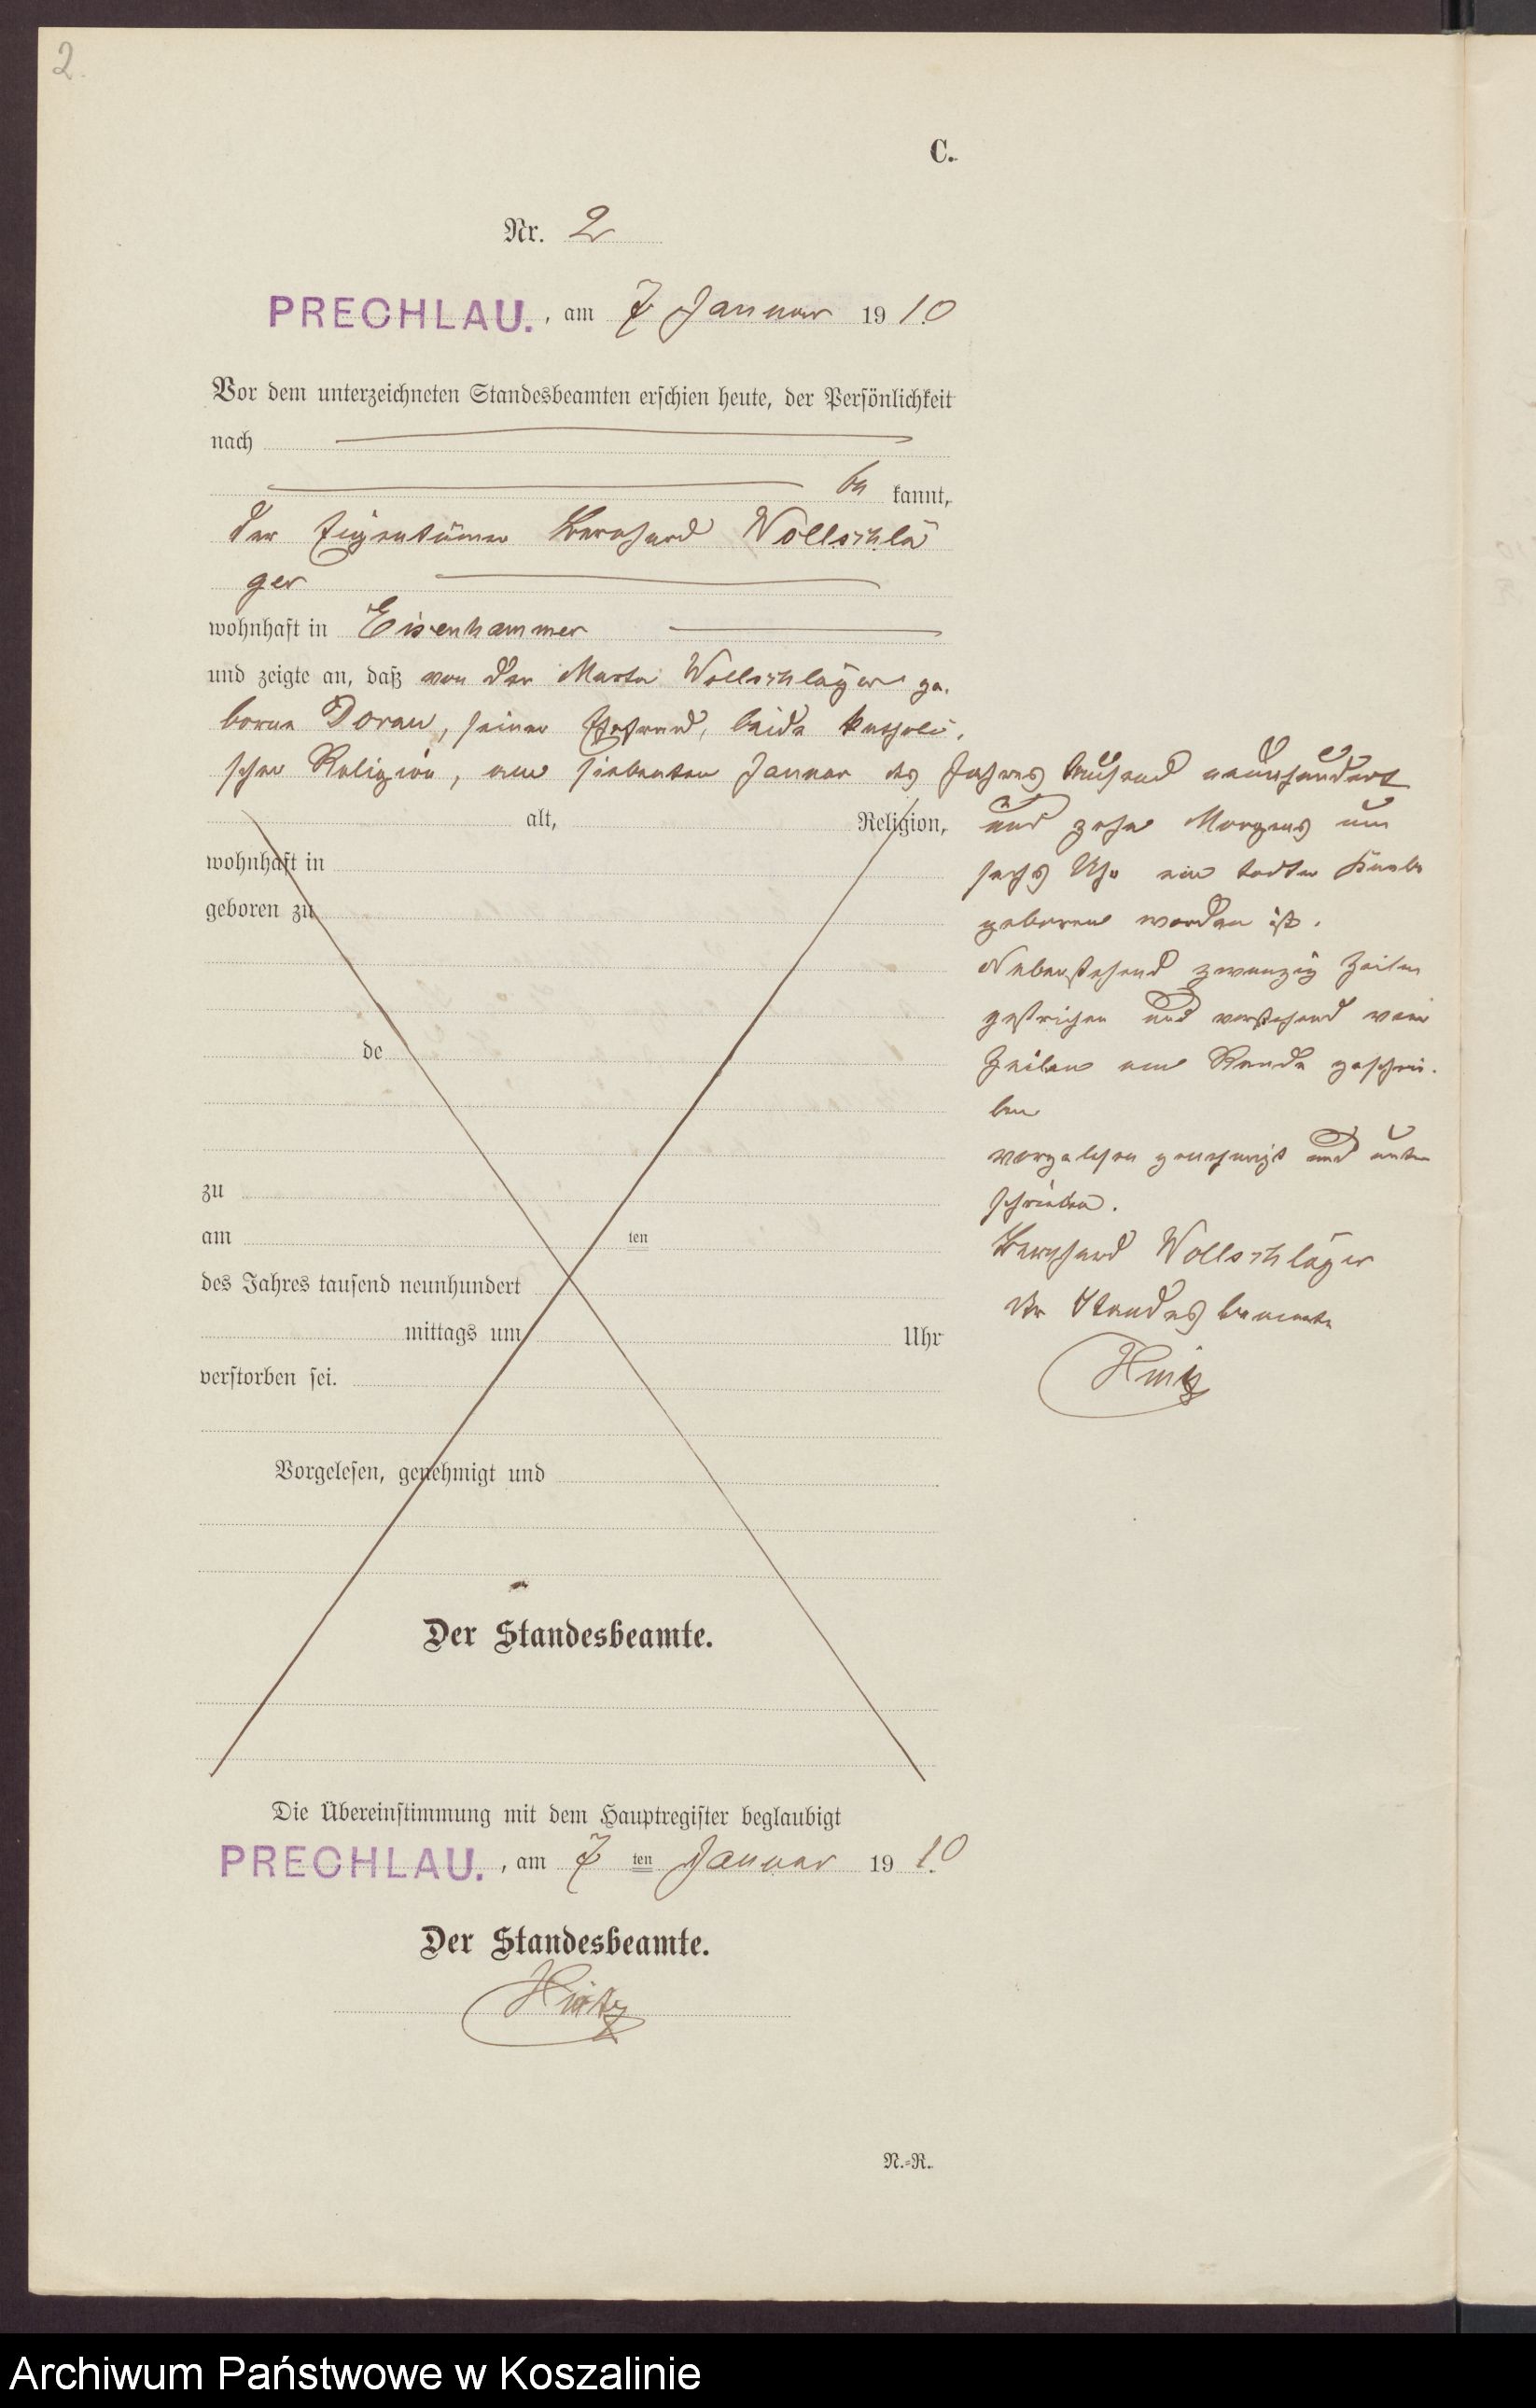 2.
C.
Nr. 2
PRECHLAU., am 7 Januar 1910
Vor dem unterzeichneten Standesbeamten erschien heute, der Persönlichkeit
nach
be kannt,
der Eigentümer Bernhard Wollschlä
ger
wohnhaft in Eisenhammer
und zeigte an, daß von der Marta Wollschläger ge.
borne Doraw, seiner Ehefrau, beide katholi.
scher Religion, am siebenten Januar des Jahres tausend neunhundert
alt, Religion,
und zehn Morgens um
wohnhaft in
sechs Uhr ein todter Knabe
geboren zu
geboren worden ist.
Nebenstehend zwanzig Zeilen
gestrichen und vorstehend vier
de
Zeilen am Rande geschrie.
ben
vorgelesen genehmigt und unter
zu
schrieben.
am ten
Bernhard Wollschläger
des Jahres tausend neunhundert
Der Standesbeamte
mittags um Uhr
verstorben sei.
Hintz
Vorgelesen, genehmigt und
Der Standesbeamte.
Die Übereinstimmung mit dem Hauptregister beglaubigt
PRECHLAU., am 7 ten Januar 1910
Der Standesbeamte.
Hintz
N.=R.
Archiwum Państwowe w Koszalinie